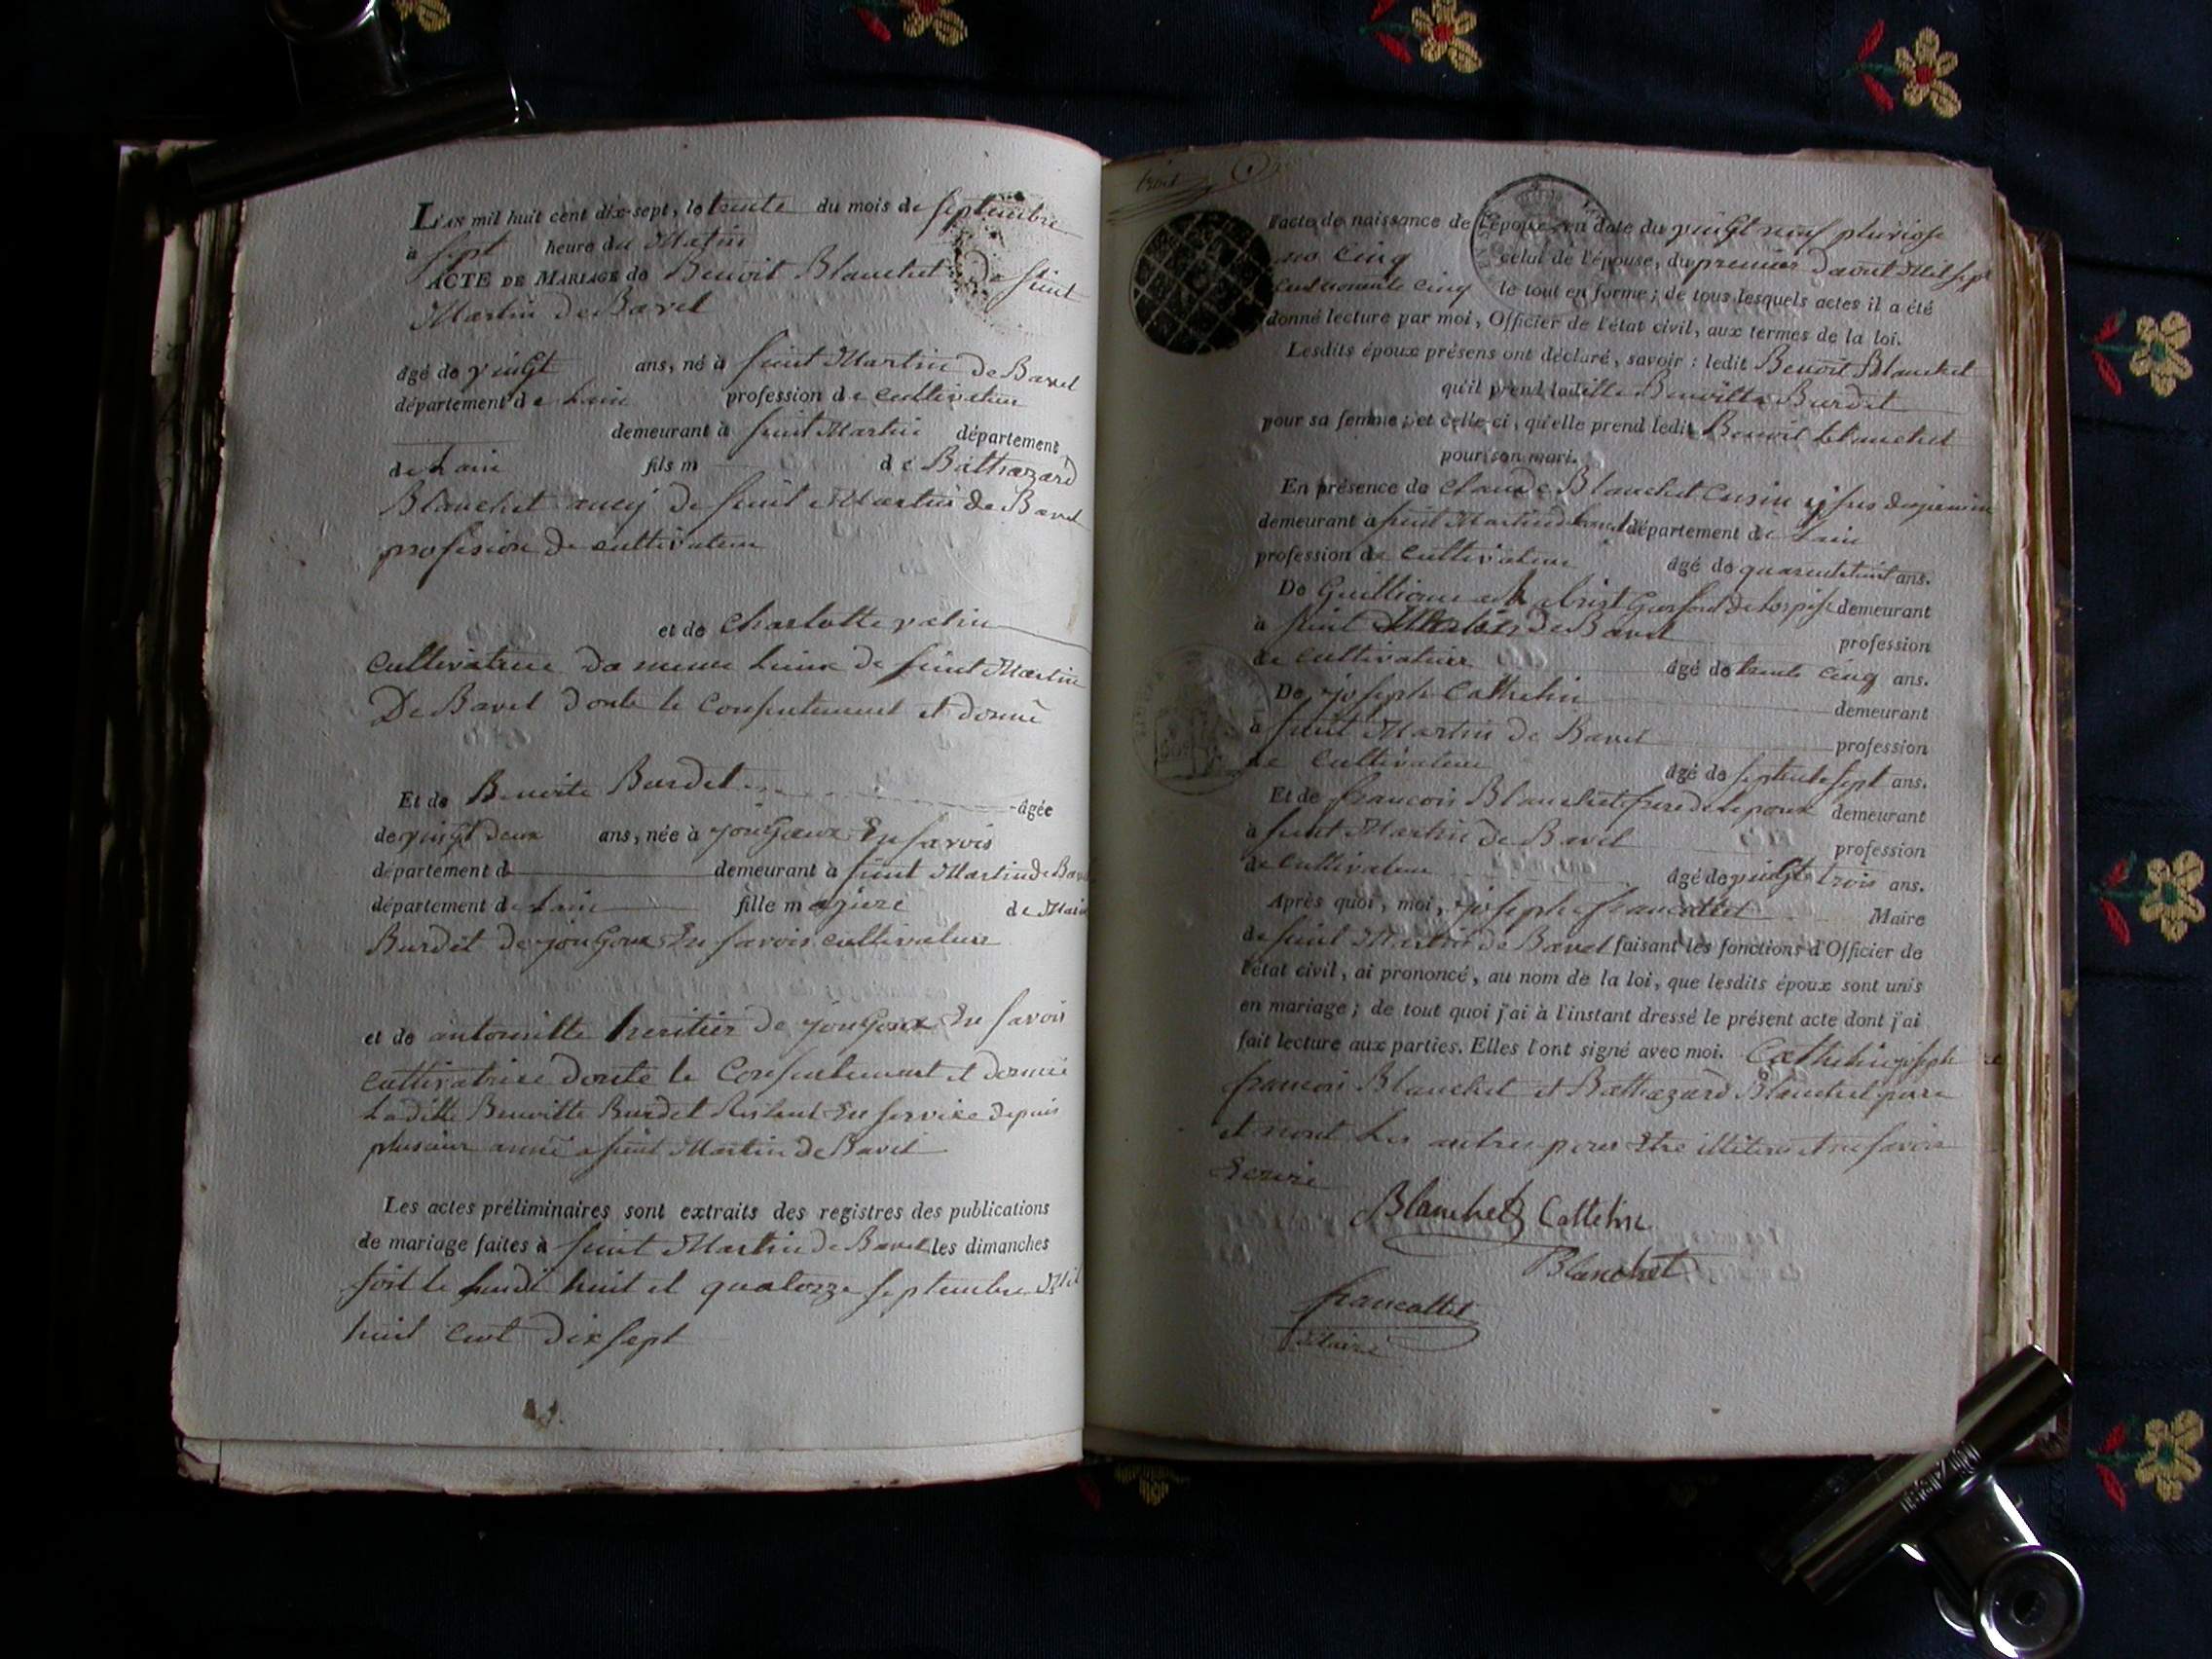 L'an mil huit cent dix-sept, le trente du mois de septembre
à sept heure du Matin
ACTE DE MARIAGE de Benoit Blanchet de saint
Martin de Bavel
âgé de vingt ans, né à saint Martin de Bavel
département de Lain profession de cultivateur
demeurant à saint Martin département
de Lain fils m de Balthazard
Blanchet de saint Martin de Bavel
profesion de cultivateur
et de Charlotte
cultivatrice du meme Lieux de saint Martin
De Bavel donte le Consentement et donné
Et de Benoite Burdet âgée
de vingt deux ans, née à jongeux En savois
département d demeurant à saint Martin de Bavel
département de Lain fille majeure de
Burdet de jongoux En savois cultivateur
et de antoinitte heritier de jongoux En savois
cultivatrice donte le Consentement et donné
Laditte Benoitte Burdet Restent En service depuis
plusieur anné a saint Martin de Bavel
Les actes préliminaires sont extraits des registres des publications
de mariage faites à saint Martin de Bavel les dimanches
soit le lundi huit et quatorze septembre Mil
huit cent dix sept
l'acte de naissance de l'époux en date du vingt neuf pluviose
an cinq celui de l'épouse, du premier daout Mil sept
cent nonante cinq le tout en forme; de tous lesquels actes il a été
donné lecture par moi, Officier de l'état civil, aux termes de la loi.
Lesdits époux présens ont déclaré, savoir : ledit Benoit Blanchet
qu'il prend ladite Benoitte Burdet
pour sa femme; et celle-ci, qu'elle prend ledit Benoit blanchet
pour son mari.
En présence de Claude Blanchet Cusin
demeurant à saint Martin de bavel département de Lain
profession de cultivateur âgé de quarente huit ans.
De Guilliaume demeurant
à saint Martin de Bavel profession
de cultivateur âgé de trente cinq ans.
De joseph Cathelin demeurant
à saint Martin de Bavel profession
de Cultivateur âgé de septente sept ans.
Et de francois Blanchet frere de Lepoux demeurant
à saint Martin de Bavel profession
de cultivateur âgé de vingt trois ans.
Après quoi, moi, joseph francallet Maire
de saint Martin de Bavel faisant les fonctions d'Officier de
l'état civil, ai prononcé, au nom de la loi, que lesdits époux sont unis
en mariage; de tout quoi j'ai à l'instant dressé le présent acte dont j'ai
fait lecture aux parties. Elles l'ont signé avec moi. Cathelin joseph
francois Blanchet et Balthazard Blanchet pere
et nont Les autres pour Etre illiteré et ne savoir
Ecrire
Blanchet Cattelin
Blanchet
francallet
Maire